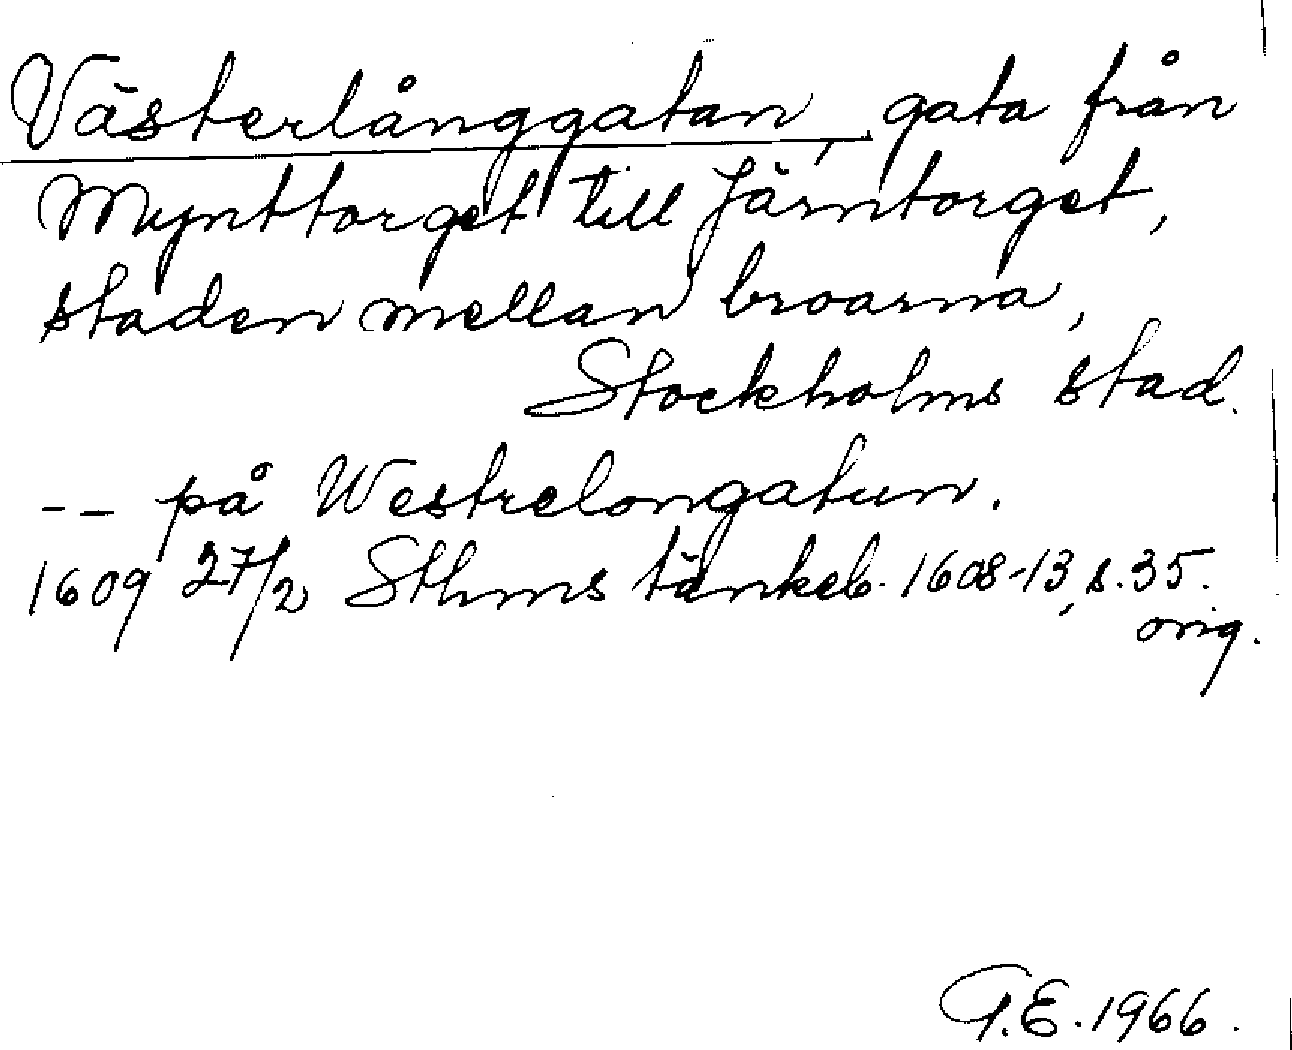 Västerlånggatan, gata från
Mynttorget till Järntorget,
staden mellan broarna,
Stockholms stad.
-- på Westrelongatun.
1609 27/2 Sthms tänkeb. 1608-13, s. 35.
orig.
G.E. 1966.